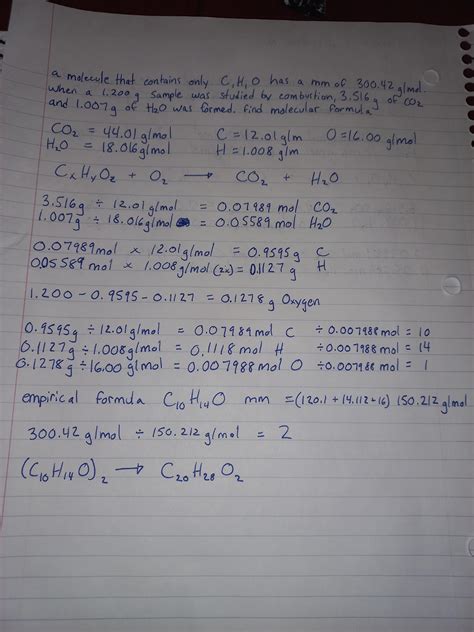 a molecule that contains only C, H, O has a mm of 300.42 g/mol.
When a 1.200 g sample was studied by combustion, 3.516 g of CO2
and 1.007 g of H2O was formed. find molecular formula
CO2 = 44.01 g/mol C = 12.01 g/m O = 16.00 g/mol
H2O = 18.016 g/mol H = 1.008 g/m
CxHyOz + O2 → CO2 + H2O
3.516g ÷ 12.01 g/mol = 0.07989 mol CO2
1.007g ÷ 18.016 g/mol = 0.05589 mol H2O
0.07989 mol x 12.01 g/mol = 0.9595 g C
0.05589 mol x 1.008 g/mol (2x) = 0.1127 g H
1.200 - 0.9595 - 0.1127 = 0.1278 g Oxygen
0.9595g ÷ 12.01 g/mol = 0.07989 mol C ÷ 0.007988 mol = 10
0.1127g ÷ 1.008 g/mol = 0.1118 mol H ÷ 0.007988 mol = 14
0.1278g ÷ 16.00 g/mol = 0.007988 mol O ÷ 0.007988 mol = 1
empirical formula C10H14O mm = (120.1 + 14.112 + 16) 150.212 g/mol
300.42 g/mol ÷ 150.212 g/mol = 2
(C10H14O)2 → C20H28O2